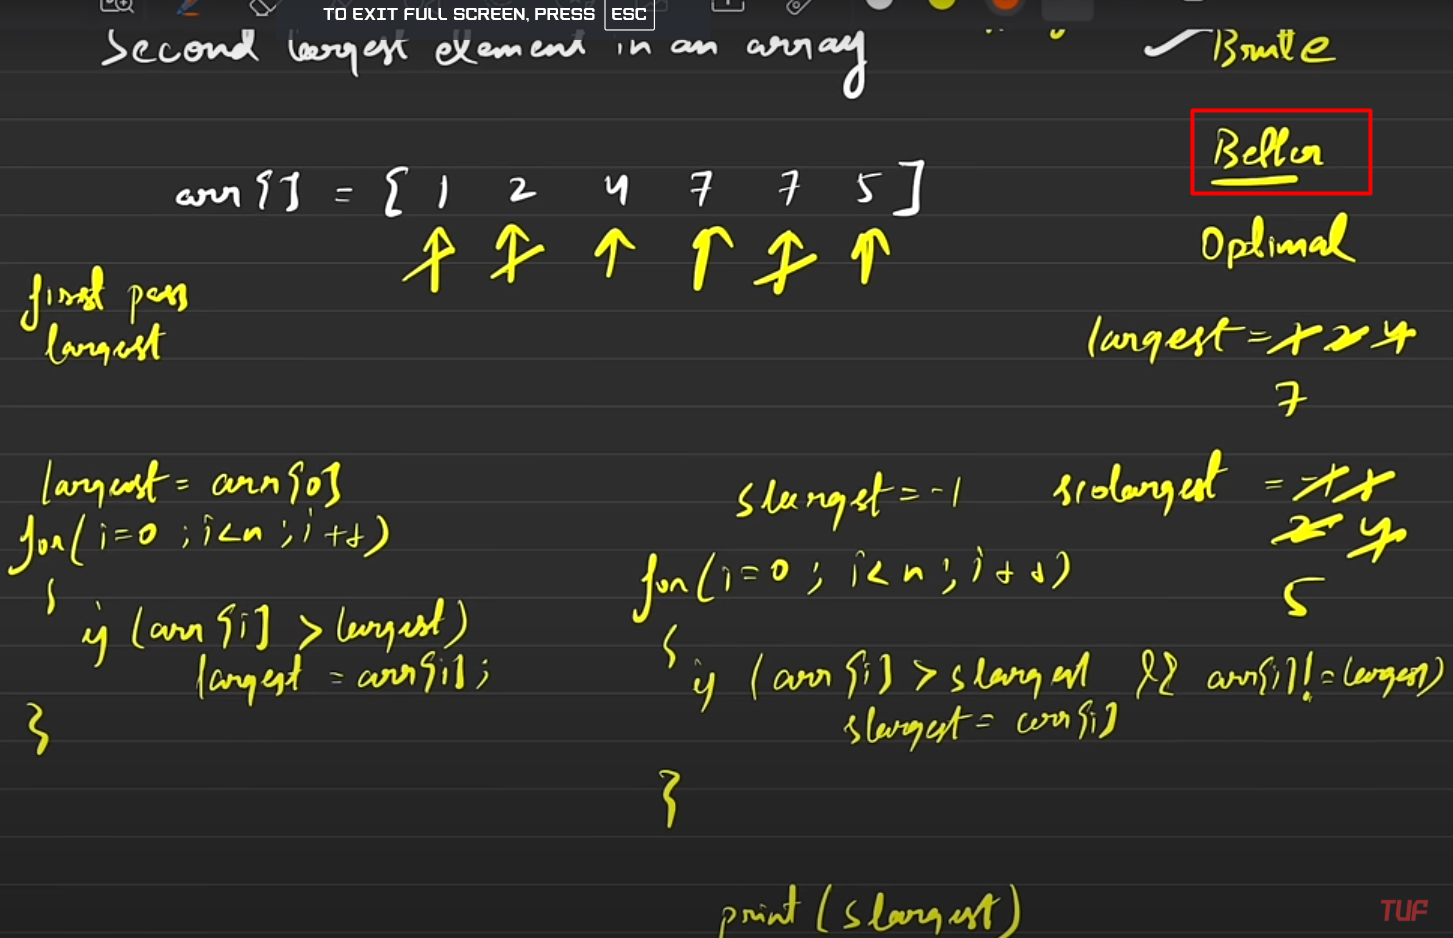 TO EXIT FULL SCREEN, PRESS ESC
Second largest element in an array
Brute
Better
Optimal
arr[] = [ 1 2 4 7 7 5 ]
first pass
largest
largest = 1 2 4
7
largest = arr[0]
for(i=0 ; i<n ; i++)
{
if (arr[i] > largest)
largest = arr[i];
}
slargest = -1
for(i=0 ; i<n ; i++)
{
if (arr[i] > slargest && arr[i] != largest)
slargest = arr[i]
}
print(slargest)
= -1 1
2 4
5
TUF